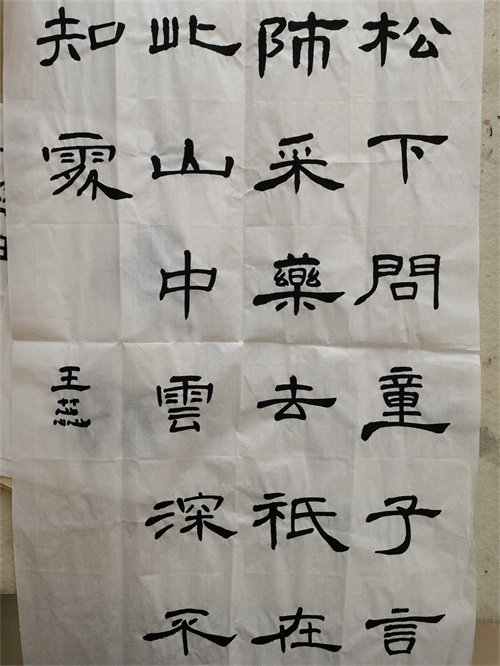 松下問童子言
師采藥去祇在
此山中雲深不
知處
王蕊